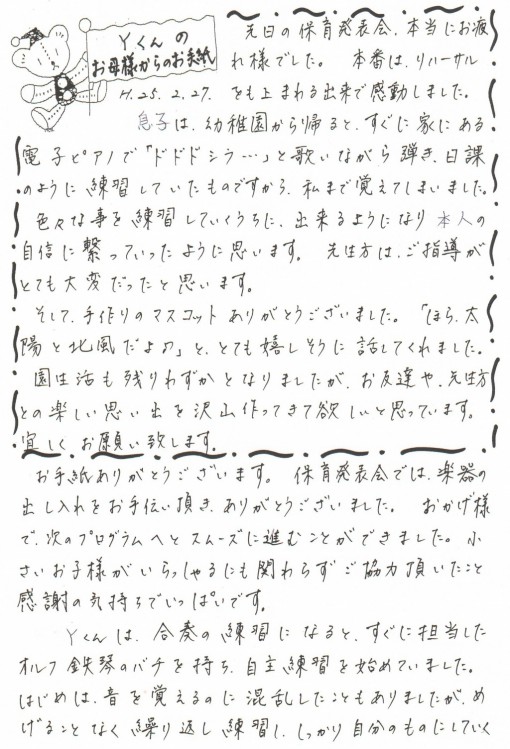 Yくんの
お母様からのお手紙
H.25.2.27.
先日の保育発表会、本当にお疲
れ様でした。 本番は、リハーサル
をも上まわる出来で感動しました。
息子は、幼稚園から帰ると、すぐに家にある
電子ピアノで「ドドドシラ…」と歌いながら弾き、日課
のように練習していたものですから、私まで覚えてしまいました。
色々な事を練習していくうちに、出来るようになり本人の
自信に繋っていったように思います。 先生方は、ご指導が
とても大変だったと思います。
そして、手作りのマスコットありがとうございました。「ほら、太
陽と北風だよ♪」と、とても嬉しそうに話してくれました。
園生活も残りわずかとなりましたが、お友達や、先生方
との楽しい思い出を沢山作ってきて欲しいと思っています。
宜しくお願い致します。
お手紙ありがとうございます。 保育発表会では、楽器の
出し入れをお手伝い頂き、ありがとうございました。 おかげ様
で、次のプログラムへとスムーズに進むことができました。小
さいお子様がいらっしゃるにも関わらずご協力頂いたこと
感謝の気持ちでいっぱいです。
Yくんは、合奏の練習になると、すぐに担当した
オルフ鉄琴のバチを持ち、自主練習を始めていました。
はじめは、音を覚えるのに混乱したこともありましたが、め
げることなく繰り返し練習し、しっかり自分のものにしていく